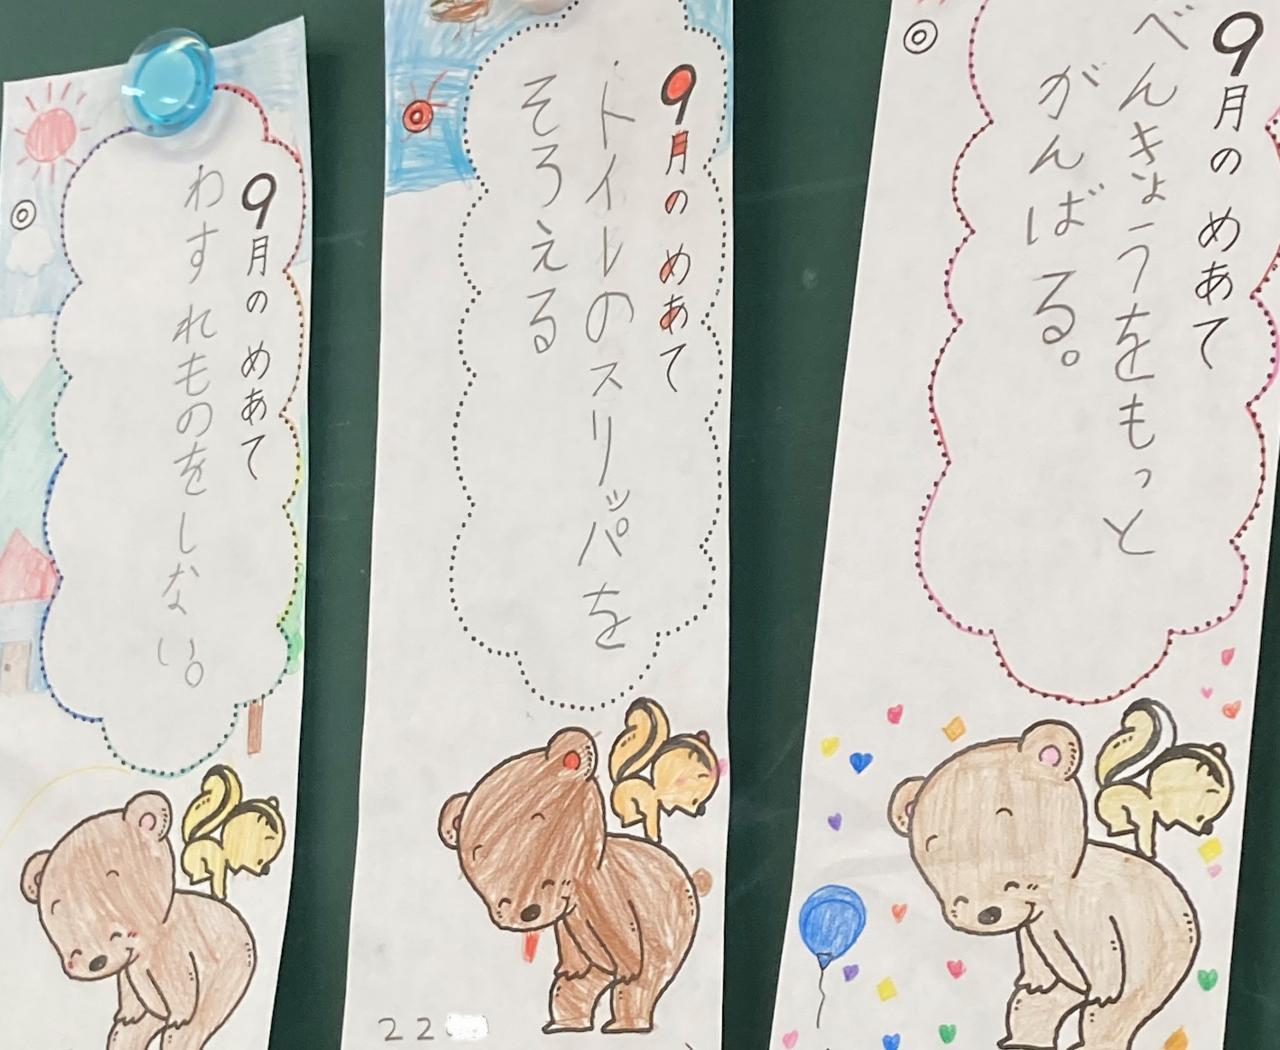 9月のめあて
わすれものをしない。
9月のめあて
トイレのスリッパを
そろえる
22
9月のめあて
べんきょうをもっと
がんばる。